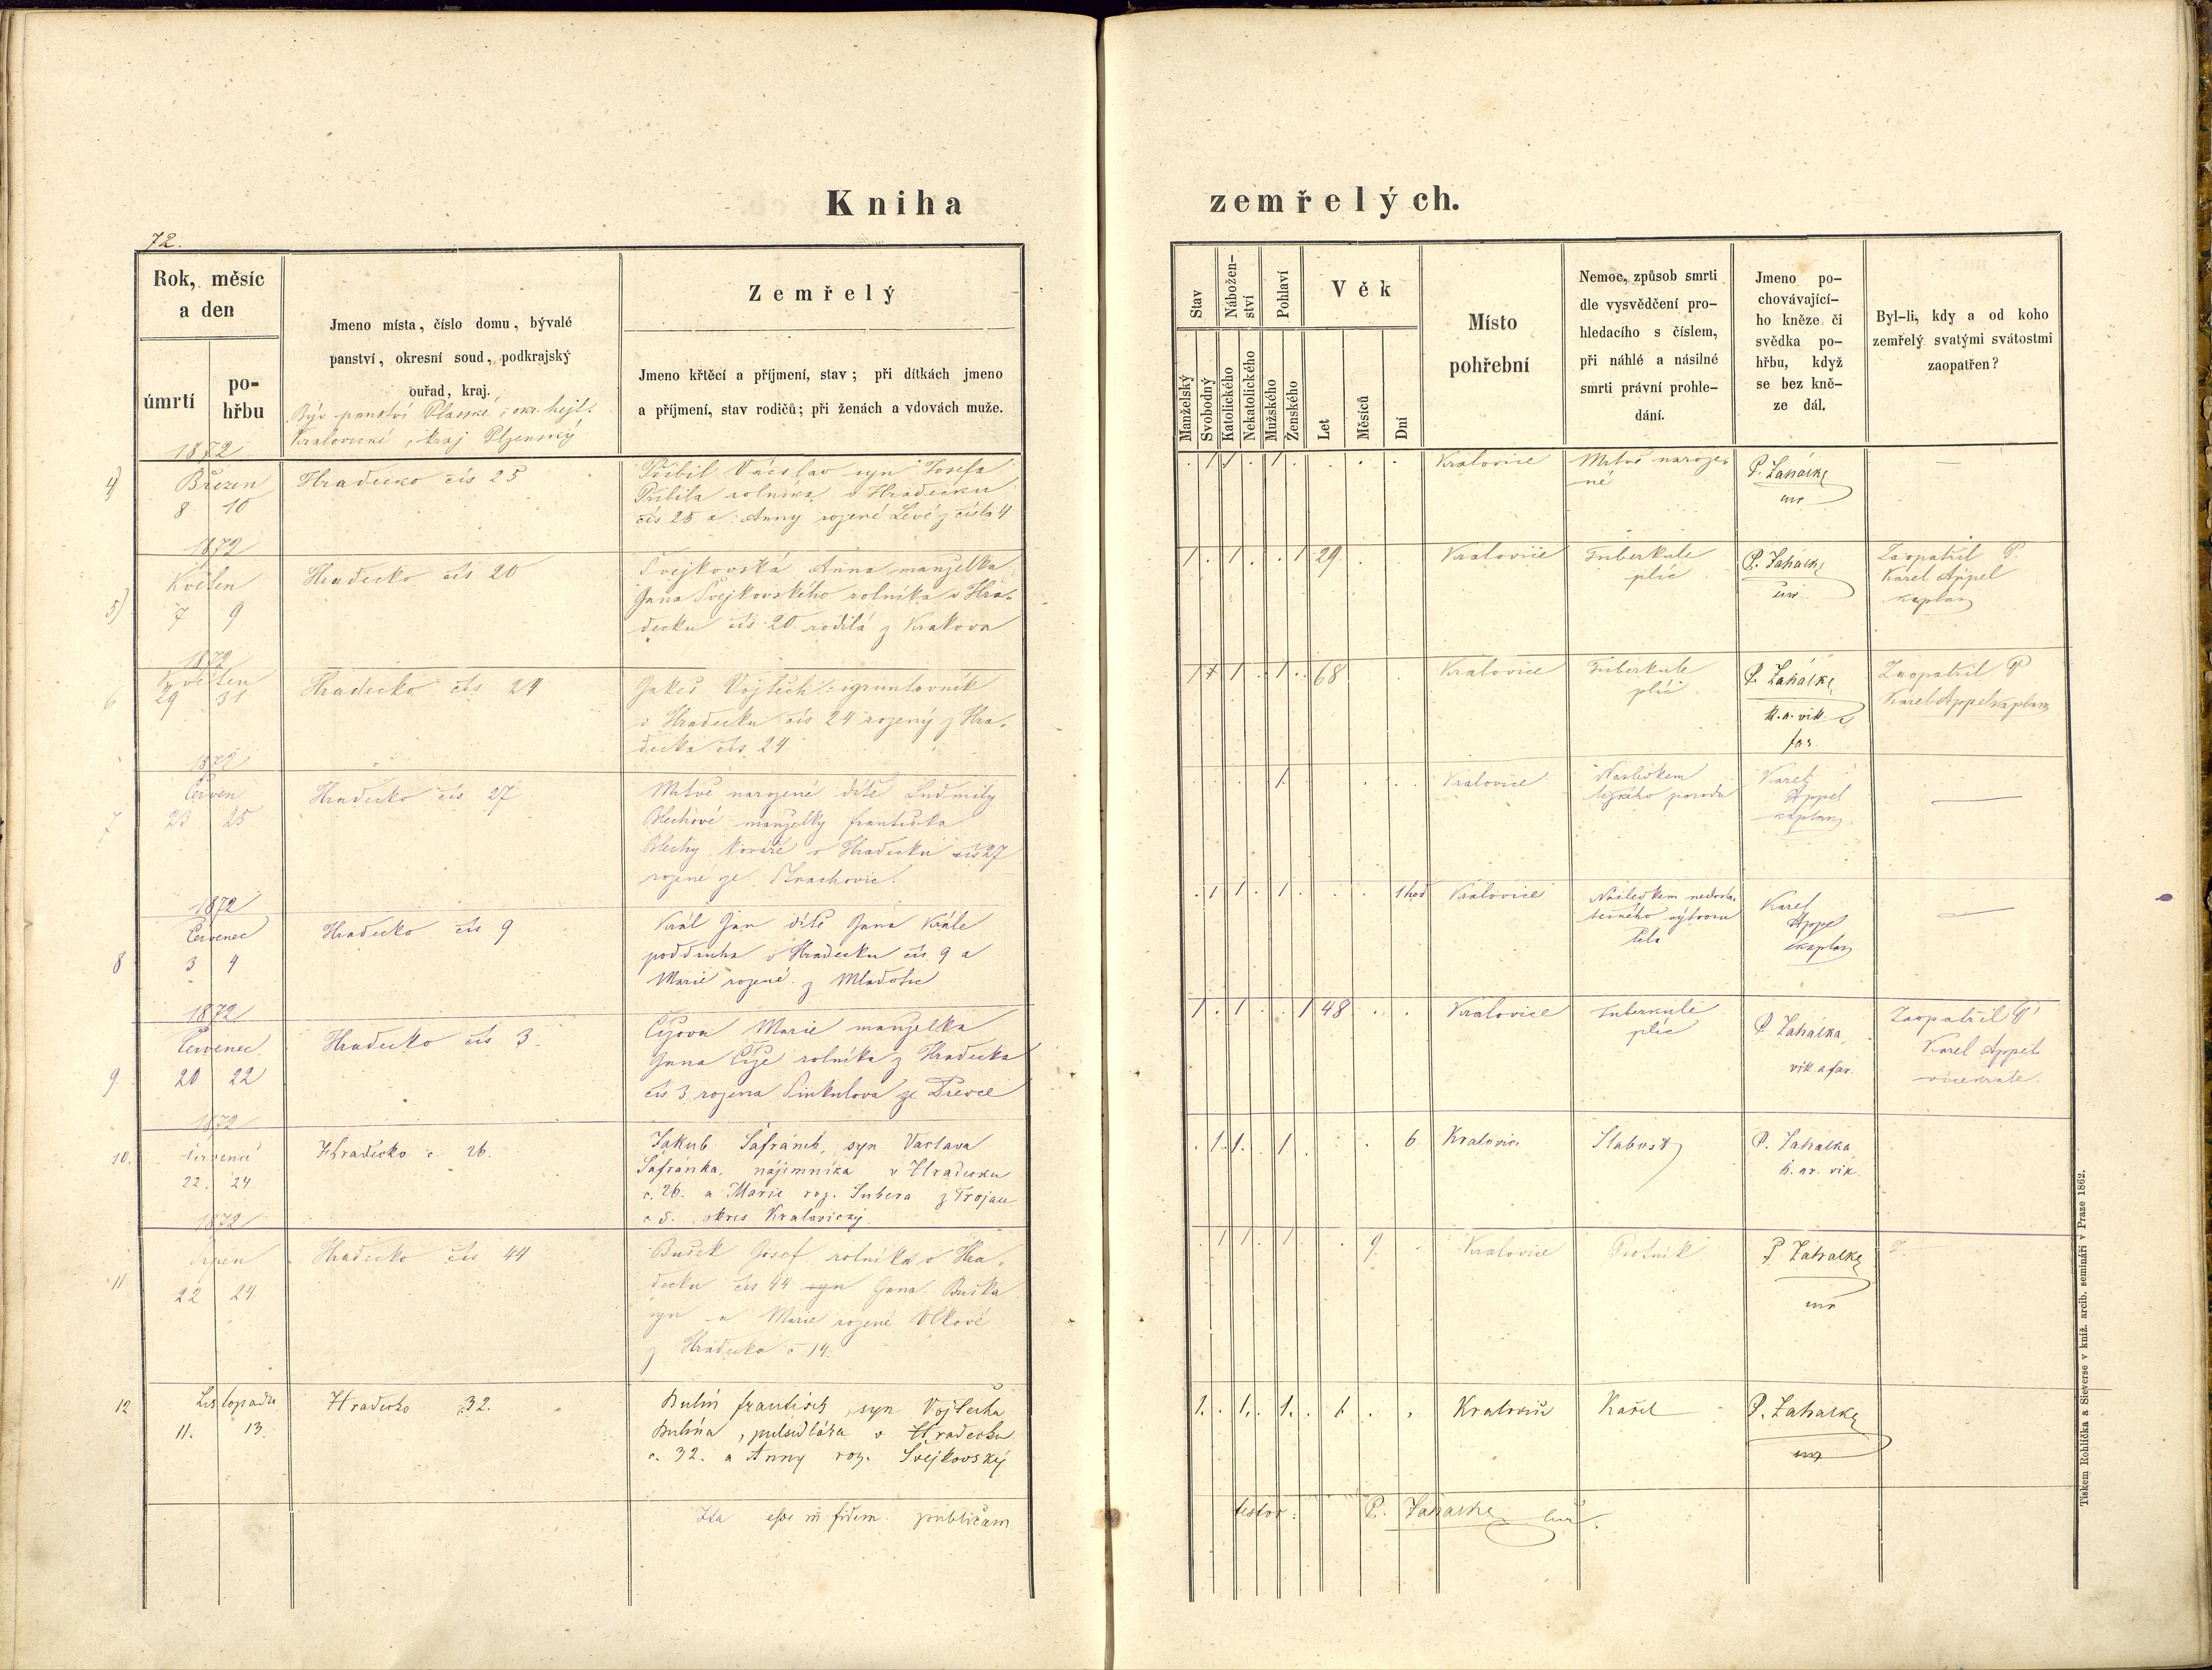 Kniha zemřelých.
72.
Rok, měsíc
a den
úmrtí
po-
hřbu
Jmeno místa, číslo domu, bývalé
panství, okresní soud, podkrajský
ouřad, kraj.
Býv. panství Plasské, okr. hejt.
Kralovické, kraj Plzenský
Zemřelý
Jmeno křtěcí a příjmení, stav; při dítkách jmeno
a příjmení, stav rodičů; při ženách a vdovách muže.
Stav
Manželský
Svobodný
Nábožen-
ství
Katolického
Nekatolického
Pohlaví
Mužského
Ženského
Věk
Let
Měsíců
Dní
Místo
pohřební
Nemoc, způsob smrti
dle vysvědčení pro-
hledacího s číslem,
při náhlé a násilné
smrti právní prohle-
dání.
Jmeno po-
chovávající-
ho kněze či
svědka po-
hřbu, když
se bez kně-
ze dál.
Byl-li, kdy a od koho
zemřelý svatými svátostmi
zaopatřen?
1872
4)
Březen
8 10
Hradecko čís 25
Přibil Václav syn Josefa
Přibila rolníka v Hradecku
čís 25 a Anny rozené Levé z čísla 4
. 1 1 . 1 . . . .
Kralovice
Mrtvě naroze-
né
P. Zahálka
—
1872
5)
Květen
7 9
Hradecko čís 20
Švejkovská Anna manželka
Jana Švejkovského rolníka v Hra-
decku čís 20 rodilá z Krakova
1 . 1 . . 1 29 . .
Kralovice
Tuberkule
plic
P. Zahálka
Zaopatřil P.
Karel Appel
kaplan
1872
6
Květen
29 31
Hradecko čís 24
Jakeš Vojtěch
v Hradecku čís 24 rozený z Hra-
decka čís 24
68
Kralovice
Tuberkule
plic
P. Zahálka
k. a. vik.
far.
Zaopatřil P
Karel Appel kaplan
1872
7
Červen
23 25
Hradecko čís 27
Mrtvě narozené dítě Ludmily
Blechové manželky Františka
Blechy kováře v Hradecku čís 27
rozené ze Strachovic.
1
Kralovice
Následkem
těžkého porodu
Karel
Appel
kaplan
—
1872
8
Červenec
3 4
Hradecko čís 9
Král Jan dítě Jana Krále
poddruha v Hradecku čís 9 a
Marie rozené z Mladotic
. 1 1 . 1 . . . 1 hod
Kralovice
Následkem nedosta-
tečného výtvoru
těla
Karel
Appel
kaplan
—
1872
9
Červenec
20 22
Hradecko čís 3.
Čížova Marie manželka
Jana Číže rolníka z Hradecka
čís 3 rozena Sinkulova ze Dřevce
1 . 1 . . 1 48 . .
Kralovice
Tuberkule
plic
P Zahálka
vik. a far.
Zaopatřil P
Karel Appel
1872
10.
červenci
22. 24
Hradecko č. 26.
Jakub Šafránek, syn Vaclava
Šafránka, nájemníka v Hradecku
č. 26. a Marie roz. Šubera z Trojan
č 5. okres Kralovický.
. 1. 1. . 1 . . . 6
Kralovic.
Slabost
P. Zahálka
k. ar. vik.
1872
11
Srpen
22 24
Hradecko čís 44
Bušek Josef rolníka v Hra-
decku čís 44 syn Jana Buška
syn a Marie rozené Vlkové
z Hradecka č 14.
. 1 1 . 1 . . 9 .
Kralovice
Psotník
P Zahálka
12
Listopadu
11. 13.
Hradecko 32.
Bulín František, syn Vojtěcha
Bulína, pulsedláka v Hradecku
č. 32. a Anny roz. Švejkovský
1. . 1. . 1. . 1. . .
Kralovic
Kašel
P. Zahálka
Ita esse in fidem publicam
testor: P. Zahálka
Tiskem Rohlíčka a Sieverse v kníž. arcib. semináři v Praze 1862.